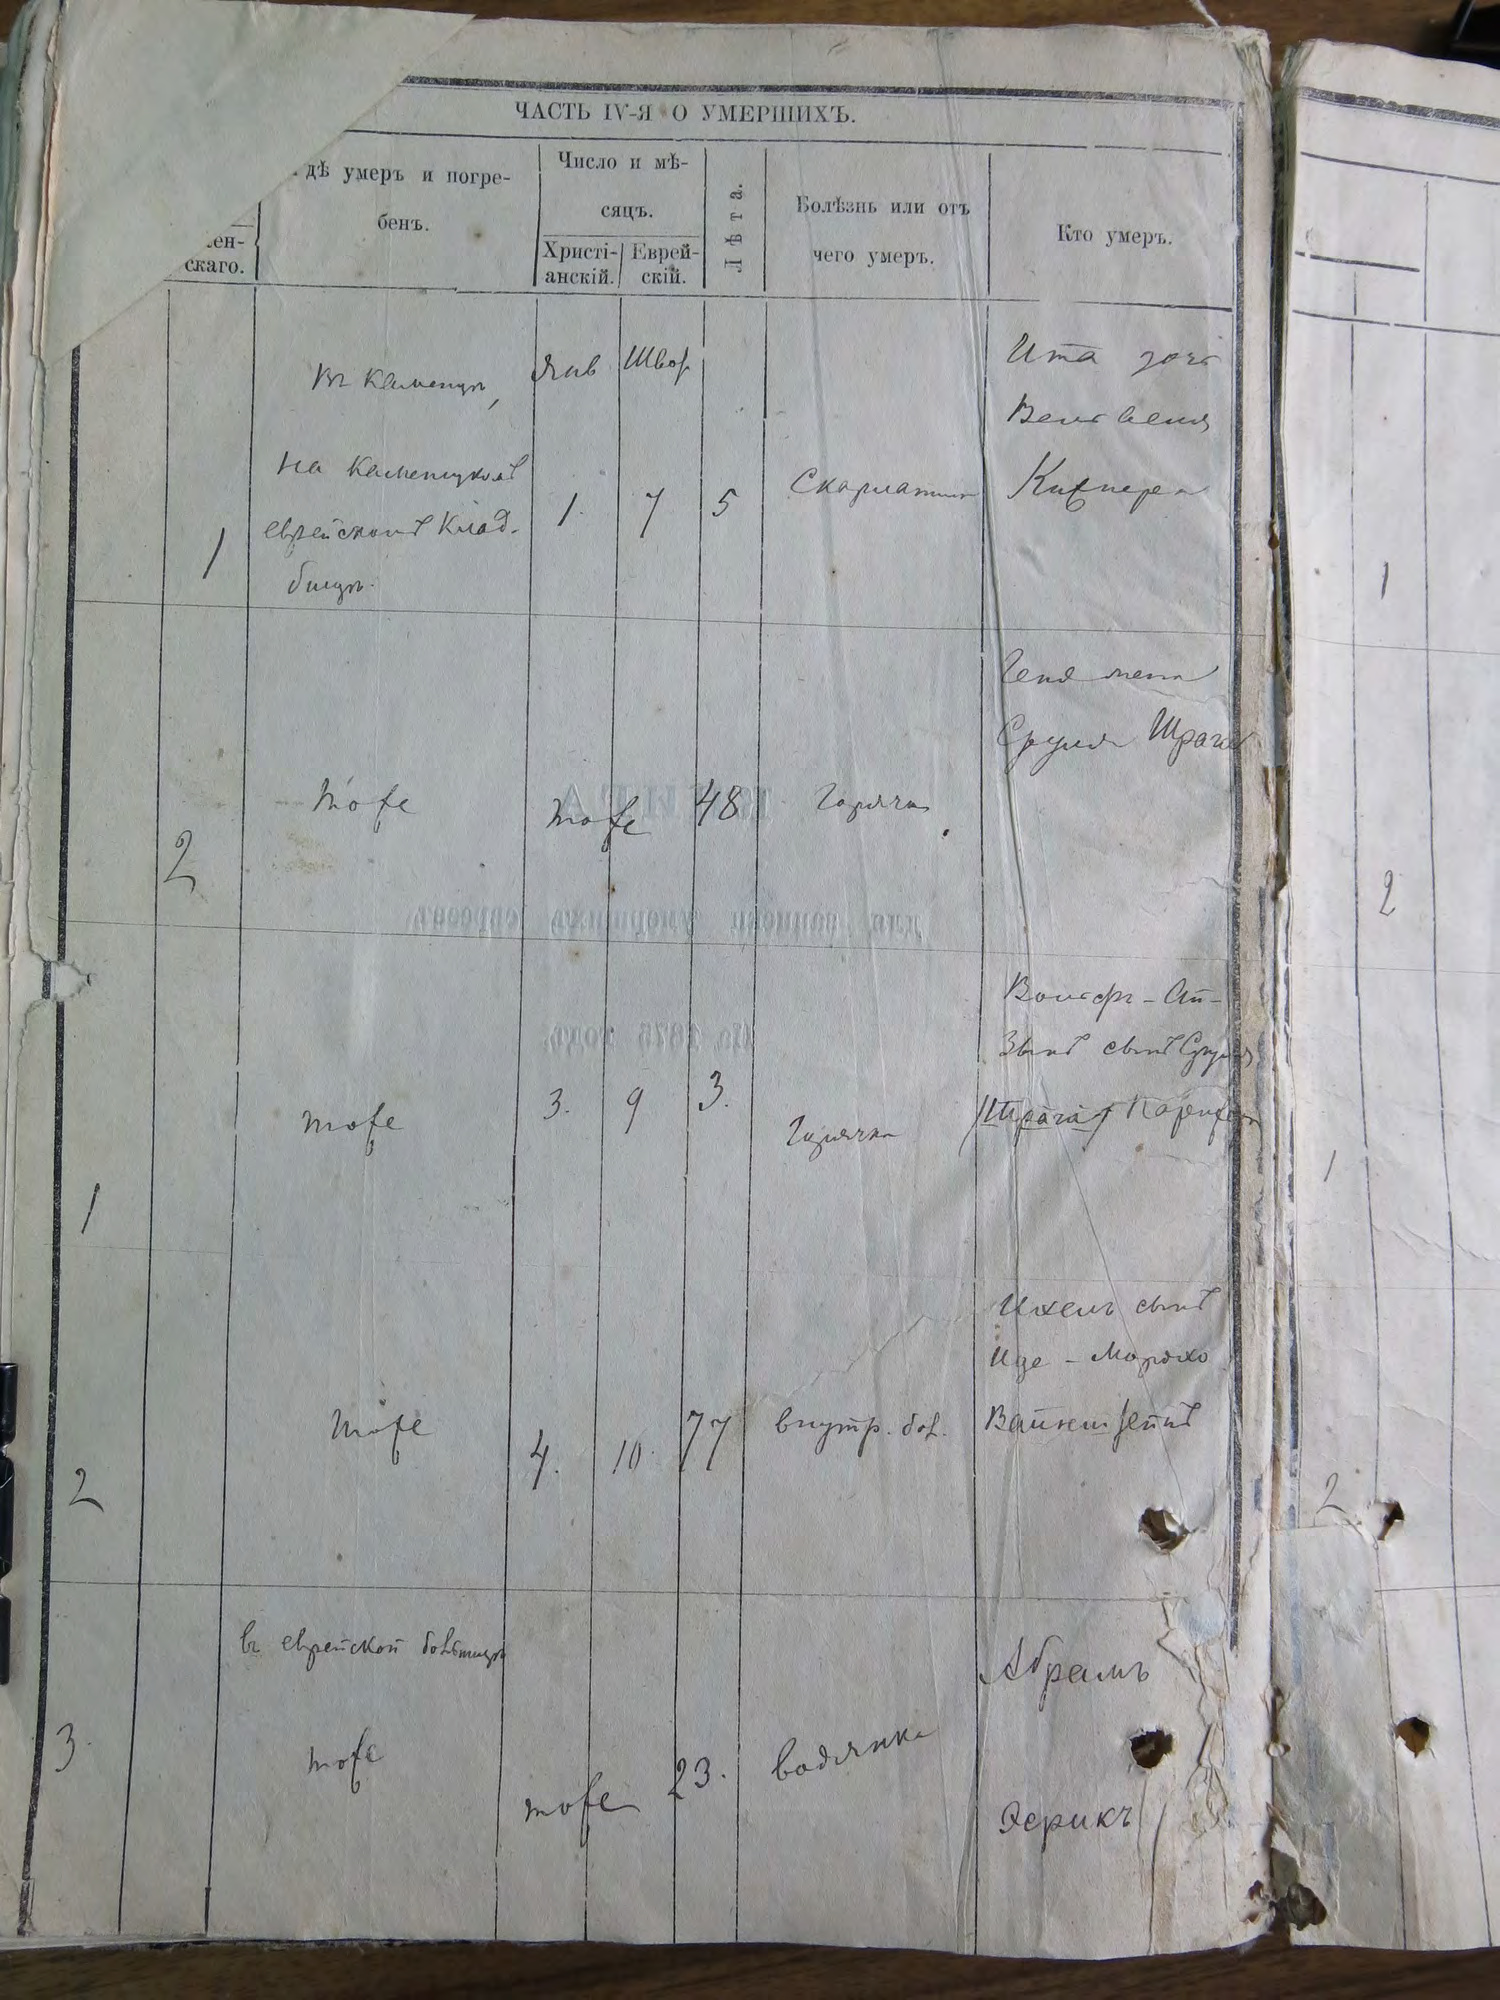 ЧАСТЬ IV-Я О УМЕРШИХЪ.
дѣ умеръ и погре-
бенъ.
Число и мѣ-
сяцъ.
Христі-
анскій.
Еврей-
скій.
Лѣта.
Болѣзнь или отъ
чего умеръ.
Кто умеръ.
ен-
скаго.
1
въ Каменцѣ,
на Каменецкомъ
еврейскомъ Клад-
бищѣ.
Янв
1.
Швор
7
5
Скарлатина
Ита дочь
Вельвеля
2
тоже
тоже
48
Горячка
Геня жена
Сруля Шраги
1
тоже
3.
9
3.
Горячка
Вольфъ-Ай-
зыкъ сынъ Сруля
Шрага
2
тоже
4.
10.
77
внутр. бол.
Ихель сынъ
Иде-Мордхо
Вайнштейнъ
3.
въ еврейской больницѣ
тоже
тоже
23.
водянка
Абрамъ
Эерикъ
1
2
1
2
для записки умершихъ евреевъ
На 1875 годъ.